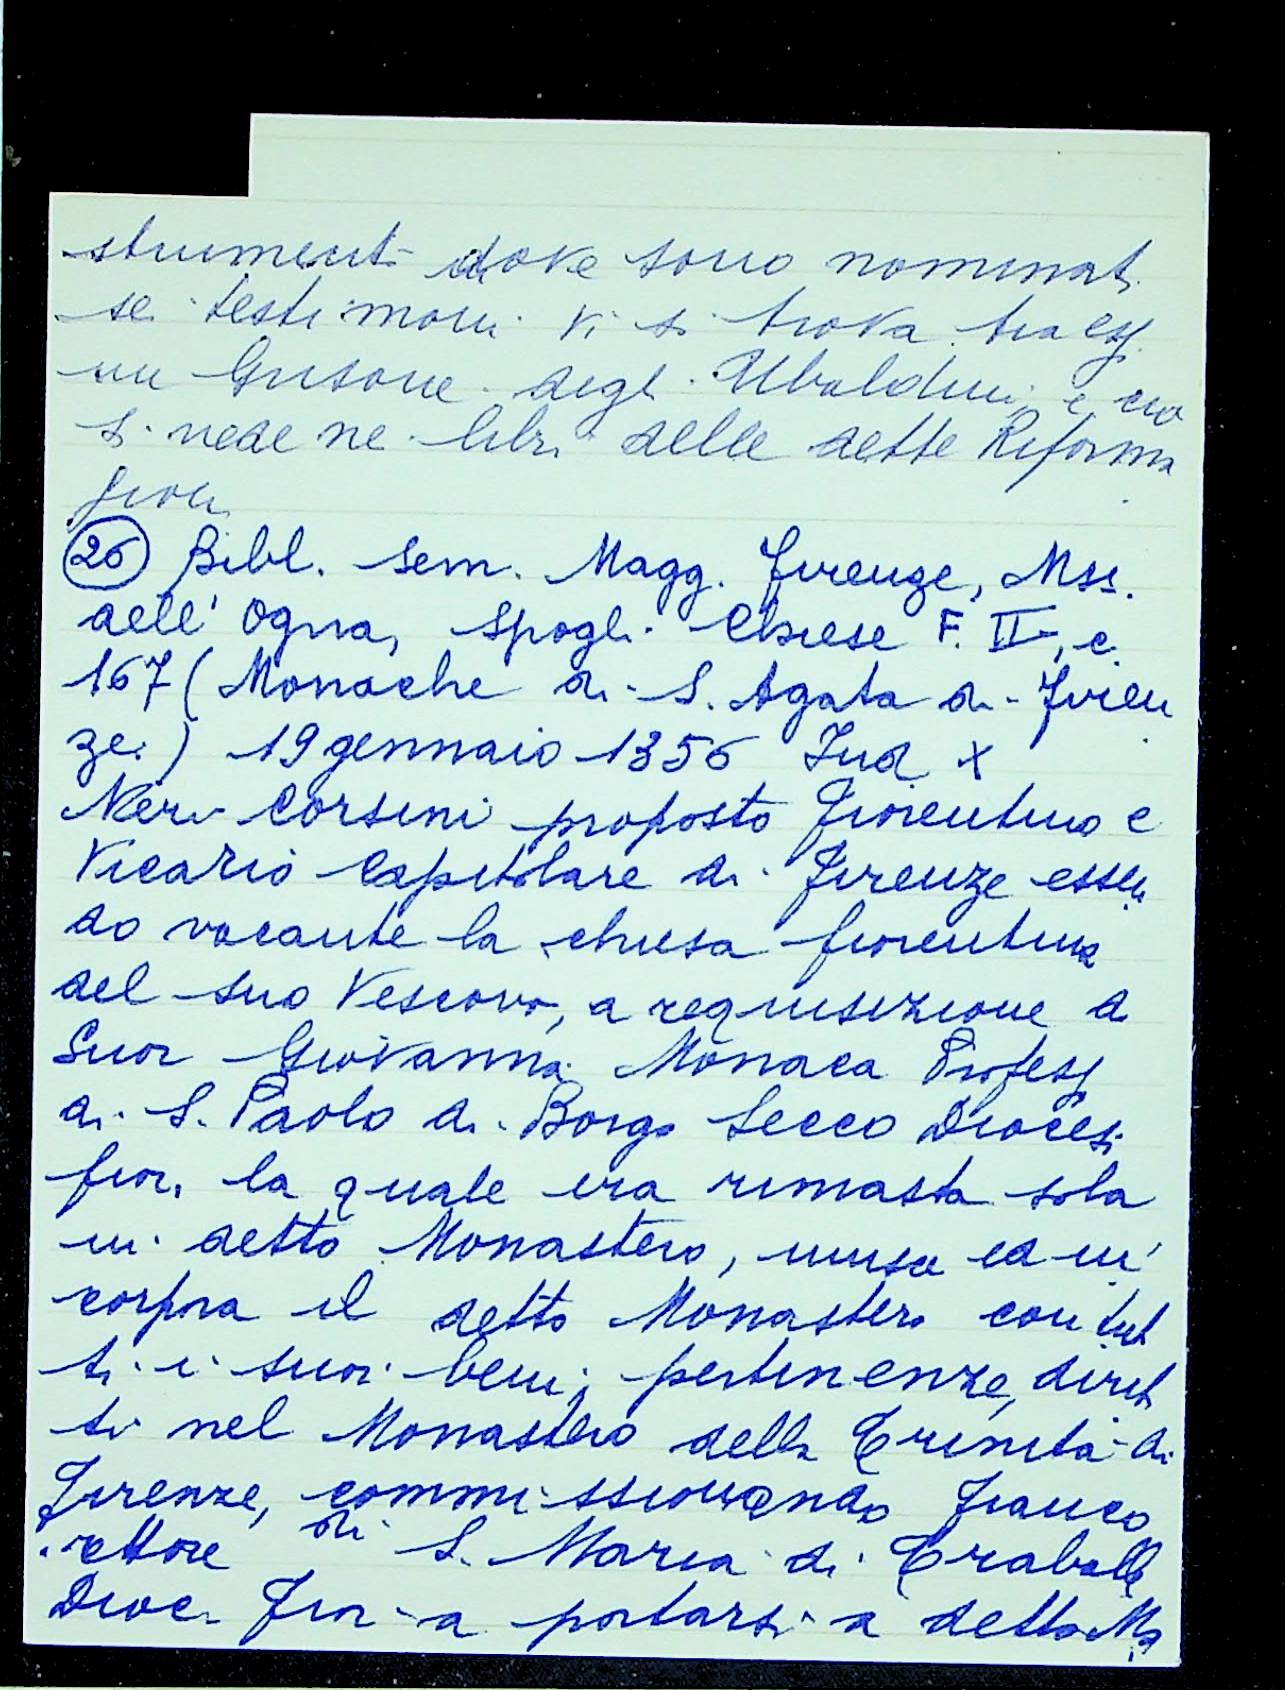 strumenti dove sono nominati
sei testimoni vi si trova tra essi
un Grisone degli Ubaldini, e ciò
si vede ne libri delle dette Riforma
gioni
(26) Bibl. Sem. Magg. Firenze, Mss.
dell'Ogna, Spogli Chiese F. II, c.
167 (Monache di S. Agata di Firen
ze.) 19 gennaio 1356 Ind X
Neri Corsini proposto Fiorentino e
Vicario Capitolare di Firenze essen
do vacante la chiesa fiorentina
del suo Vescovo, a requisizione di
Suor Giovanna Monaca Profess
di S. Paolo di Borgo Secco Diocesi
fior, la quale era rimasta sola
in detto Monastero, unisce ed in
corpora il detto Monastero con tut
ti i suoi beni, pertinenze, dirit
ti nel Monastero della Trinità di
Firenze, commissionando Franco
rettore di S. Maria di Eraballe
Dioc. Fior a portarsi a detto Mo